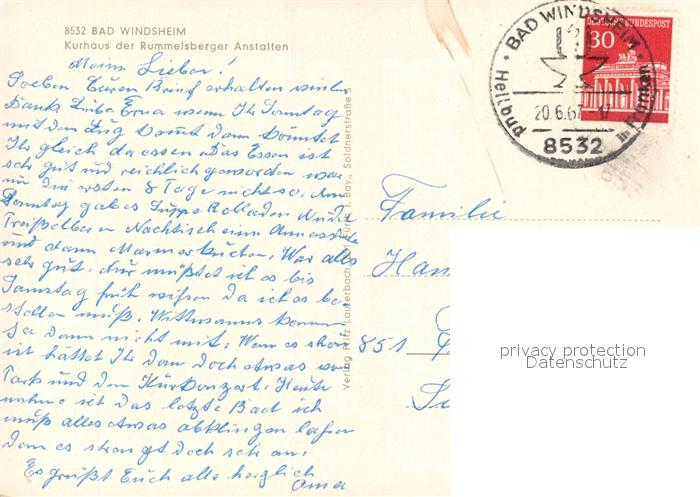 8532 BAD WINDSHEIM
Kurhaus der Rummelsberger Anstalten
Meine Lieben!
Soeben Euren Brief erhalten vielen
Dank Liebe Erna wenn Ihr Sonntag
mit dem Zug kommt dann könntet
Ihr gleich da essen. Das Essen ist
sehr gut und reichlich geworden war
nur die ersten 8 Tage nicht so. Am
Sonntag gab es Suppe Rolladen Nudel
Preißelbeeren Nachtisch eine
und dann Marmorkuchen. War alles
sehr gut. Nur müßtet ich es bis
Samstag früh wissen da ich es be-
stellen muß. Wittmanns kommen
ja dann nicht mit. Wenn es schön
ist hättet Ihr dann doch etwas vom
Park und dem Kurkonzert. Heute
nahm ich das letzte Bad ich
muß alles etwas abklingen lassen
denn es strengt doch sehr an.
Es grüßt Euch alle herzlich
Oma
Verlag Fritz Lauterbach, Fürth i. Bay., Soldnerstraße
BAD WINDSHEIM
Heilbad
20.6.67
8532
DEUTSCHE BUNDESPOST
30
Familie
Han
851
privacy protection
Datenschutz